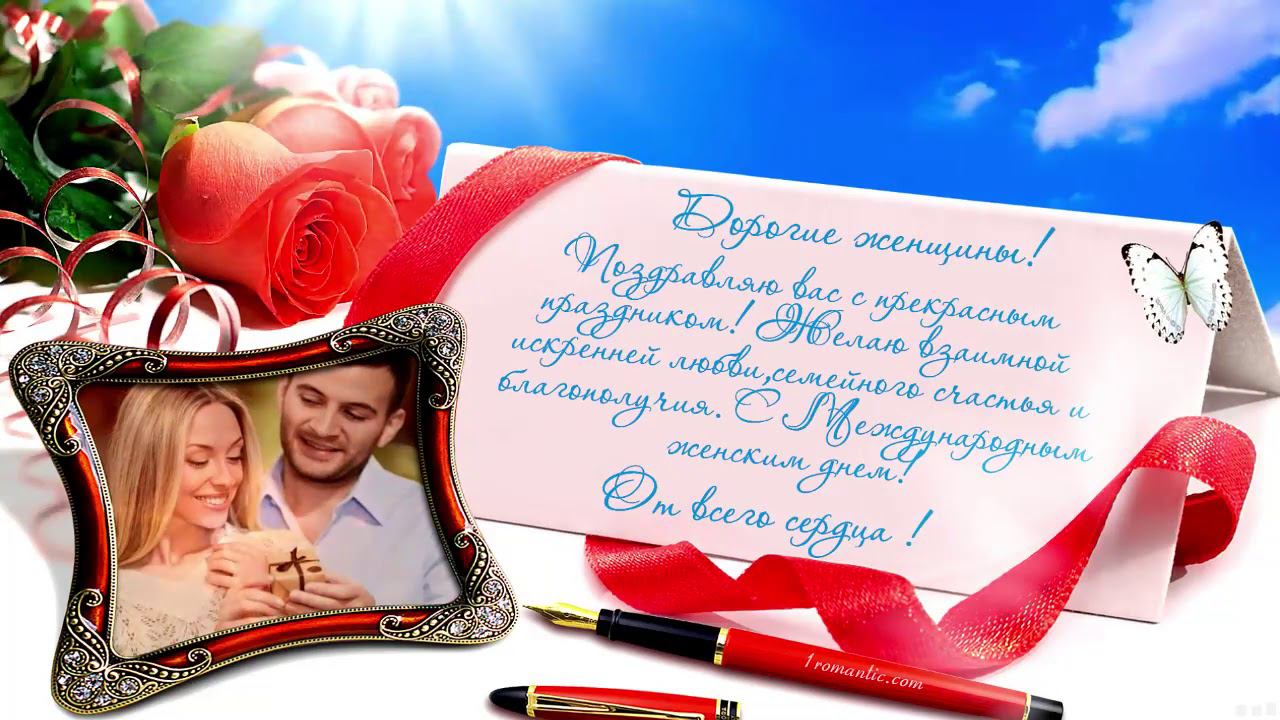 Дорогие женщины!
Поздравляю вас с прекрасным
праздником! Желаю взаимной
искренней любви,семейного счастья и
благополучия. С Международным
женским днем!
От всего сердца !
1romantic.com